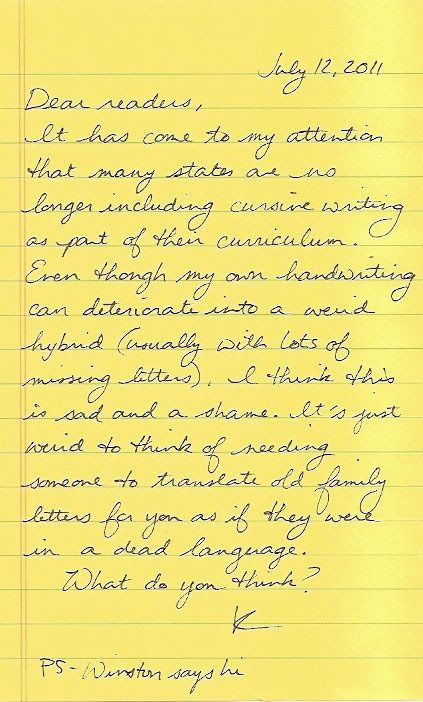 July 12, 2011
Dear readers,
It has come to my attention
that many states are no
longer including cursive writing
as part of their curriculum.
Even though my own handwriting
can deteriorate into a weird
hybrid (usually with lots of
missing letters), I think this
is sad and a shame. It's just
weird to think of needing
someone to translate old family
letters for you as if they were
in a dead language.
What do you think?
K
PS - Winston says hi